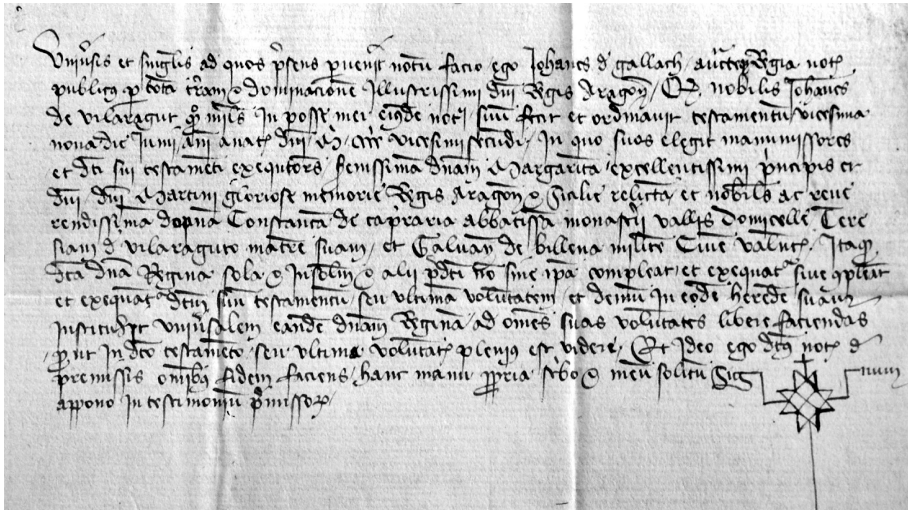 Uniṽsis et singl̃is ad quos p̃sens p̃ven̾it notũ facio ego Joha̾nes d̾ gallach, auct̾e Regia not̾
publicq p̱ totã t̾ram ⁊ dominacione Illustrissimi dñi Regis Aragon̾, Q̃ nobilis Joha̾nes
de vilaragut q̃ miles In posse mei eiusde not̾i, suũ fecit et ordinavit testamentũ vicesima
nona die Junii, ãni a nat̾ dñi M̃. vicesimi secundi, In quo suos elegit manumissores
et dc̃i sui testamẽti exequtors, Serenissima dñam Margarita, excellentissimi p̃ncipis et
dñi dñi Martini gloriose memorie Regis Aragon̾ ⁊ Sicilie relicta, et nobilis ac reve
rendissima dopna Constanca de capraria abbatissa monast̃ii vallis domicelle Tere
siam d̾ vilaraguto matre suam, et Galvan de billena milite Cive Valent̾, Itaq̃
dc̃a dña Regina sola ⁊ Insolid̃ ⁊ alii p̃dc̃i nõ sine ip̃a compleat, et exequat̾ sive 9pleant
et exequat̾ dc̃m suũ testamentũ, seu ultima voluntatem, et demũ In eode herede suam
Instituit uniṽsalem eande dñam Regina, ad om̃es suas voluntates libere faciendas
p̱ut In dc̃o testamẽto, seu ultima voluntat̾ plenius est videre, Et Ideo ego dc̃us not̾ d̾
premissis om̃ibus fidem faciens, hanc manu p̱pria sc̾bo ⁊ meũ solitũ Sig num
appono In testimoniũ p̃missor̾,